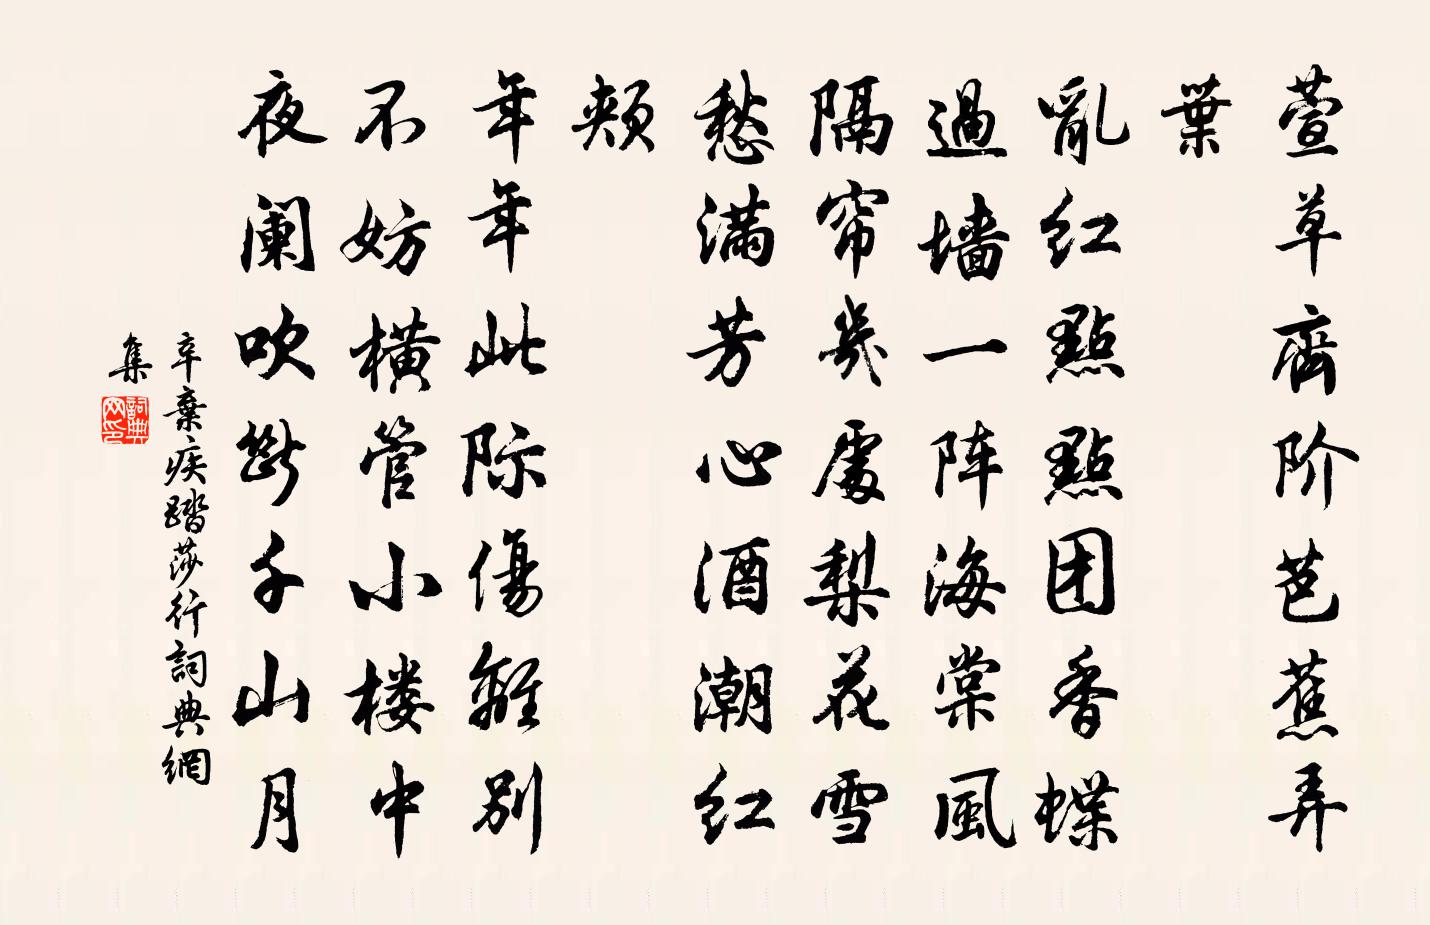 萱草齊阶芭蕉弄
葉
亂红點點团香蝶
過墙一阵海棠風
隔帘幾處梨花雪
愁满芳心酒潮红
颊
年年此际傷離别
不妨横管小楼中
夜阑吹斷千山月
辛棄疾踏莎行詞典網
集
詞典
网印